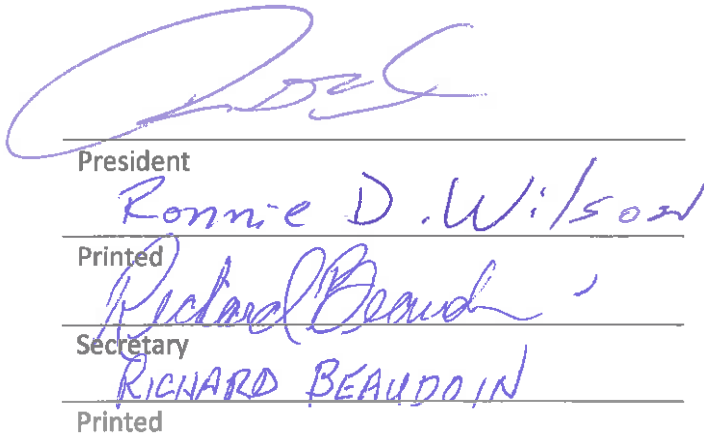 President
Ronnie D. Wilson
Printed
Richard Beaudoin
Secretary
RICHARD BEAUDOIN
Printed